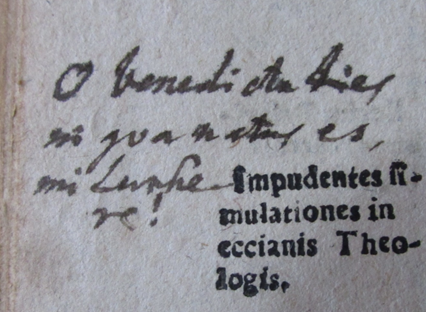 O benedicta dies
in qua natus es,
mi Luthe-
re!
Impudentes si-
mulationes in
eccianis Theo-
logis.